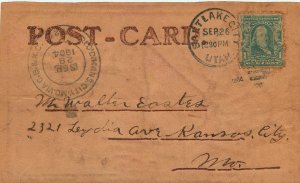 POST-CARD
SALT LAKE CITY
SEP 26
2:30 PM
UTAH
1904
Mr Walter Coates
2321 Lydia Ave Kansas City
Mo.